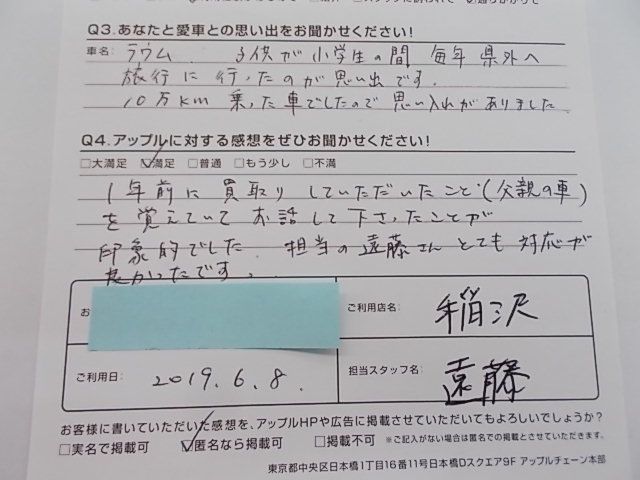 Q3.あなたと愛車との思い出をお聞かせください!
車名: ラウム 子供が小学生の間 毎年 県外へ
旅行に行ったのが思い出です.
10万km 乗った車でしたので思い入れがありました
Q4.アップルに対する感想をぜひお聞かせください!
□大満足 ☑満足 □普通 □もう少し □不満
1年前に買取りしていただいたこと(父親の車)
を覚えていて お話して下さったことが
印象的でした. 担当の遠藤さん とても対応が
良かったです.
お
ご利用店名: 稲沢
ご利用日: 2019.6.8.
担当スタッフ名: 遠藤
お客様に書いていただいた感想を、アップルHPや広告に掲載させていただいてもよろしいでしょうか?
□実名で掲載可 ☑匿名なら掲載可 □掲載不可 ※ご記入がない場合は匿名での掲載とさせていただきます。
東京都中央区日本橋1丁目16番11号日本橋Dスクエア9F アップルチェーン本部